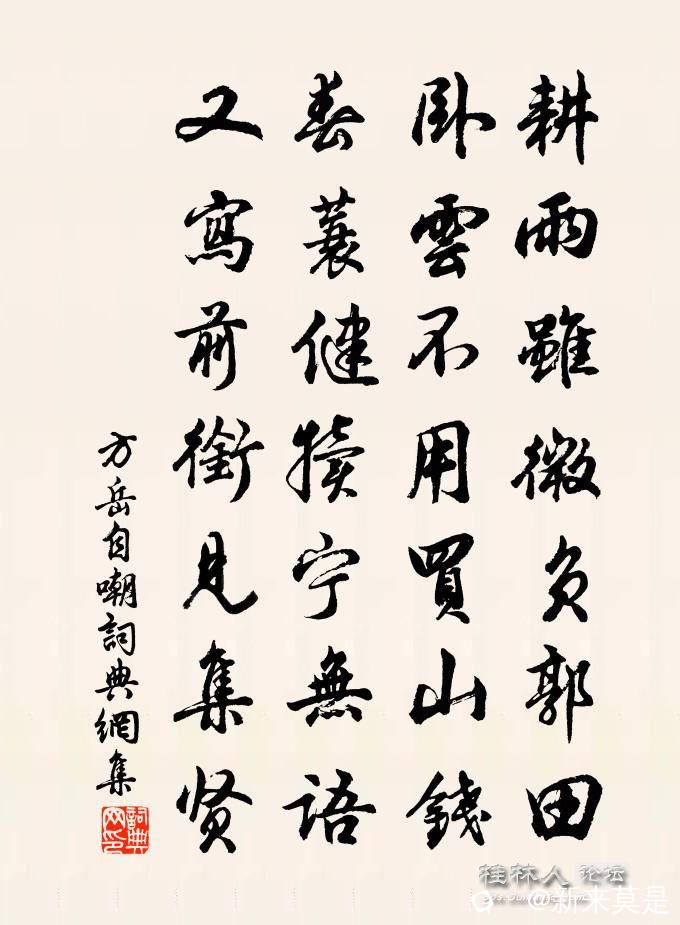 耕雨雖微負郭田
卧雲不用買山錢
春蓑健犢宁無語
又寫前銜見集贤
方岳自嘲詞典網集
詞典網印
桂林人论坛
@新来莫是